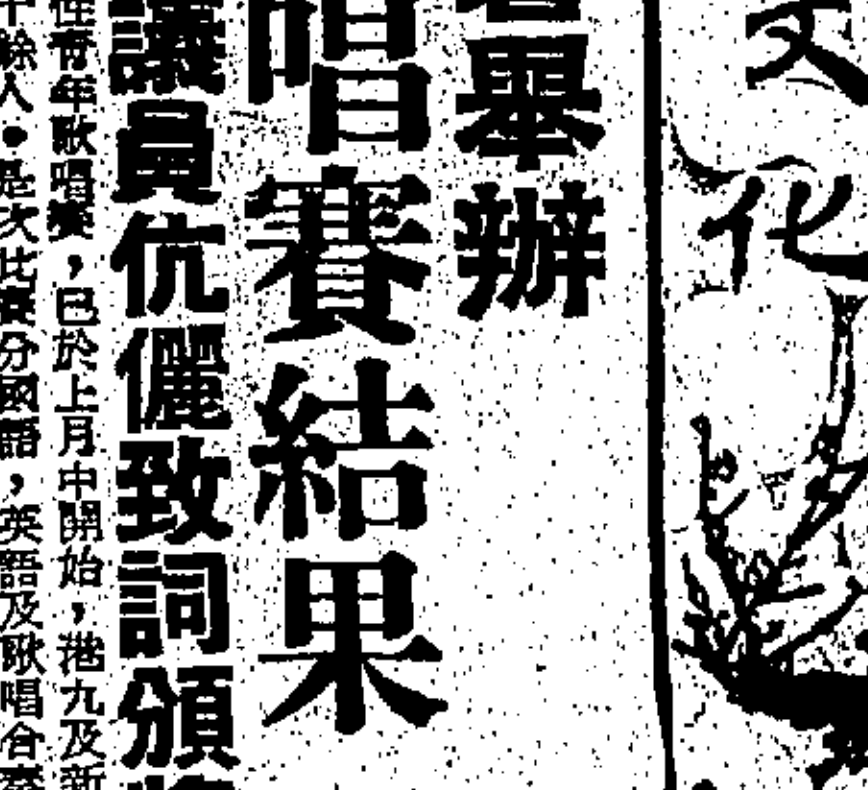 文化
舉辦
唱賽結果
議員伉儷致詞頒
性青年歌唱賽，已於上月中開始，港九及新
餘人。是次比賽分國語，英語及歌唱合奏